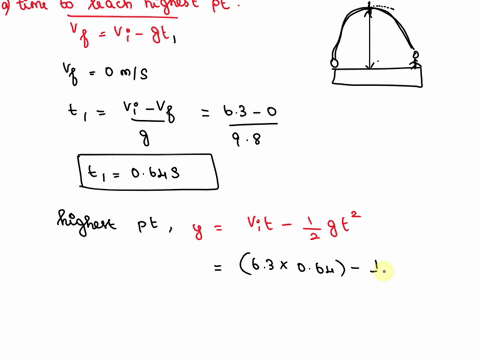 a) time to reach highest pt.
Vf = Vi - gt,
Vf = 0 m/s
t1 = Vi - Vf / g = 6.3 - 0 / 9.8
t1 = 0.64s
highest pt, y = Vit - 1/2 gt²
= (6.3 × 0.64) - 1.